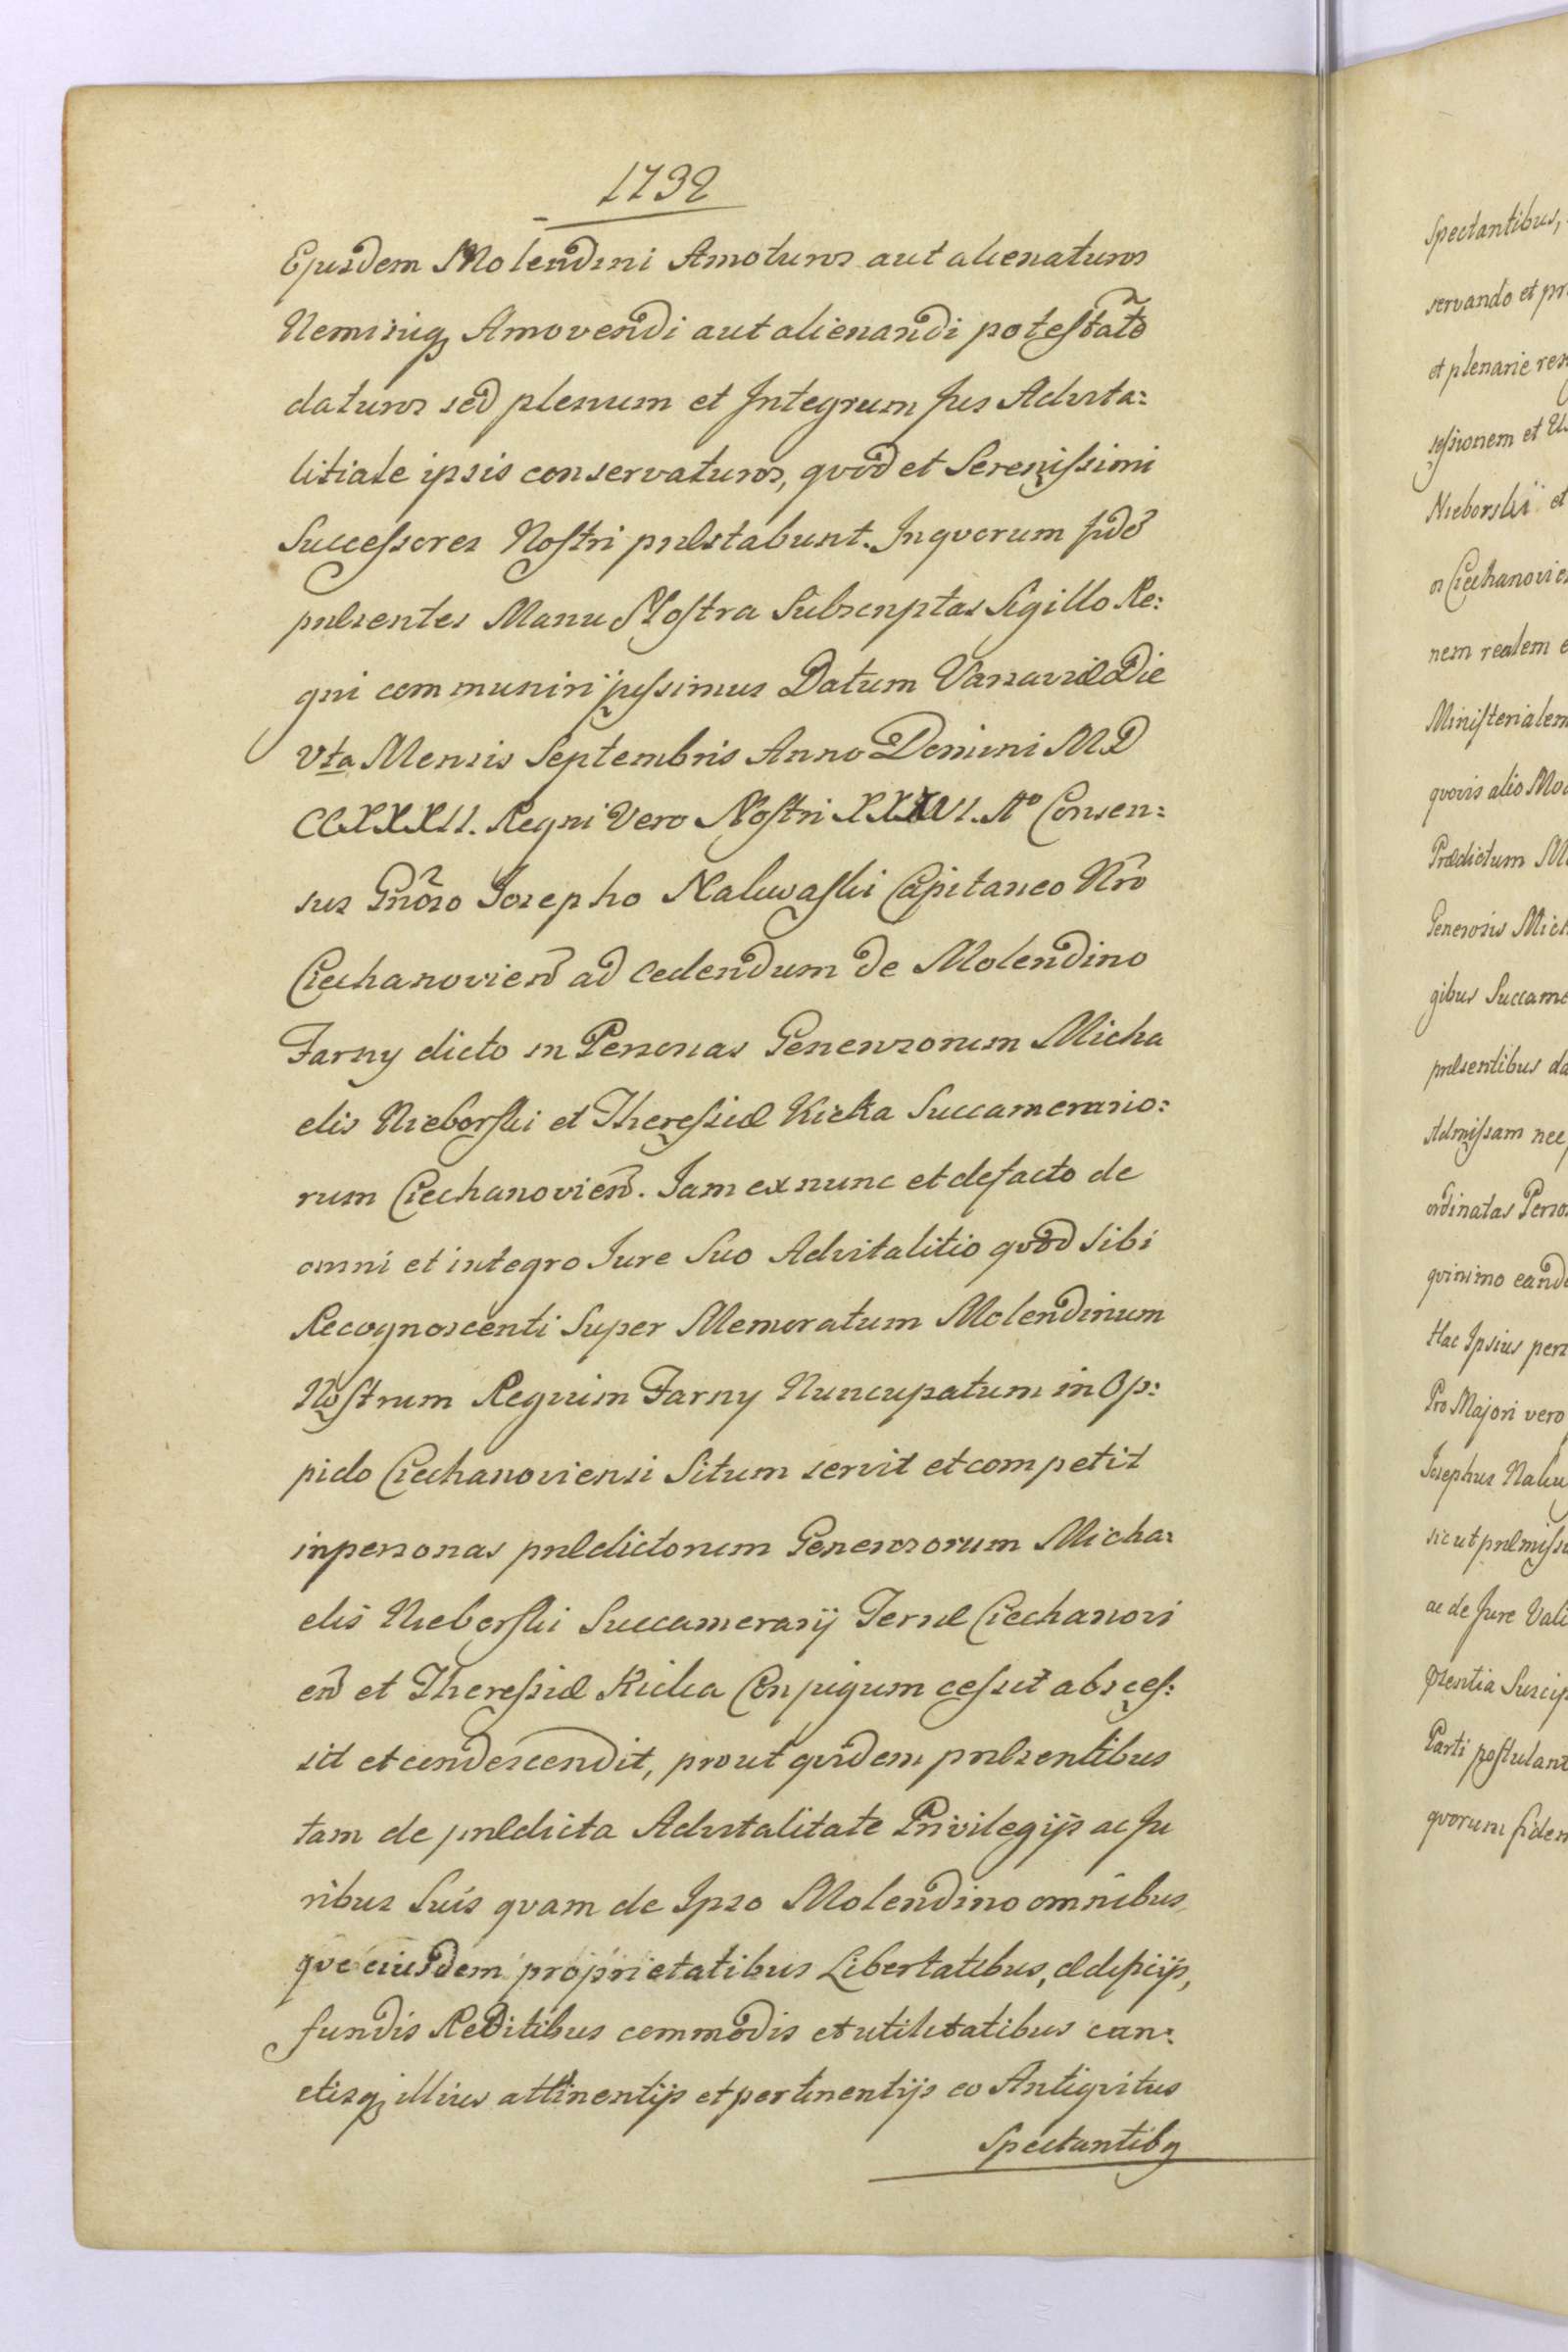 1732
Ejusdem Molendini Amoturos aut alienaturos
Neminiq₃ Amovendi aut alienandi potestatẽ
daturos sed plenum et Integrum Jus Advita:
litiale ipsis conservaturos, qvod et Serenissimi
Successores Nostri præstabunt. Inqvorum fidẽ
præsentes Manu Nostra Subscriptas Sigillo Re:
gni communiri jussimus Datum Varsaviæ Die
Vta Mensis Septembris Anno Domini MD
CCXXXII. Regni Vero Nostri XXXVI. Aº Consen:
sus Gnõso Josepho Nakwaski Capitaneo Nrõ
Ciechanovieñ ad cedendum de Molendino
Farny dicto in Personas Generosorum Micha
elis Nieborski et Theressiæ Kicka Succamerario:
rum Ciechanovieñ. Jam ex nunc et defacto de
omni et integro Jure Suo Advitalitio qvod sibi
Recognoscenti Super Memoratum Molendinum
Nostrum Regium Farny Nuncupatum in Op:
pido Ciechanoviensi Situm servit et competit
inpersonas prædictorum Generosorum Micha:
elis Nieborski Succamerarij Terræ Ciechanovi
eñ et Theressiæ Kicka Conjugum cessit absces:
sit et condescendit, prout qvidem præsentibus
tam de prædicta Advitalitate Privilegijs ac Ju
ribus Suis qvam de Ipso Molendino omnibus
qve eiusdem proprietatibus Libertatibus, ædificijs,
fundis Reditibus commodis et utilitatibus cun:
ctisq₃ illius attinentijs et pertinentijs eo Antiqvitus
Spectantibq
Spectantibus,
servando et pr
et plenarie
sessionem et
Nieborski et
Ciechanovie
nem realem e
Ministerialem
qvovis alio Mo
Prædictum M
Generosis Mich
gibus Succame
præsentibus da
Admissam nec
ordinatas Perso
qvinimo eand
Hac Ipsius pers
Pro Majori vero
Josephus Nakw
sic ut præmiss
ac de Jure Vali
Suscip
Parti postulant
qvorum fidem